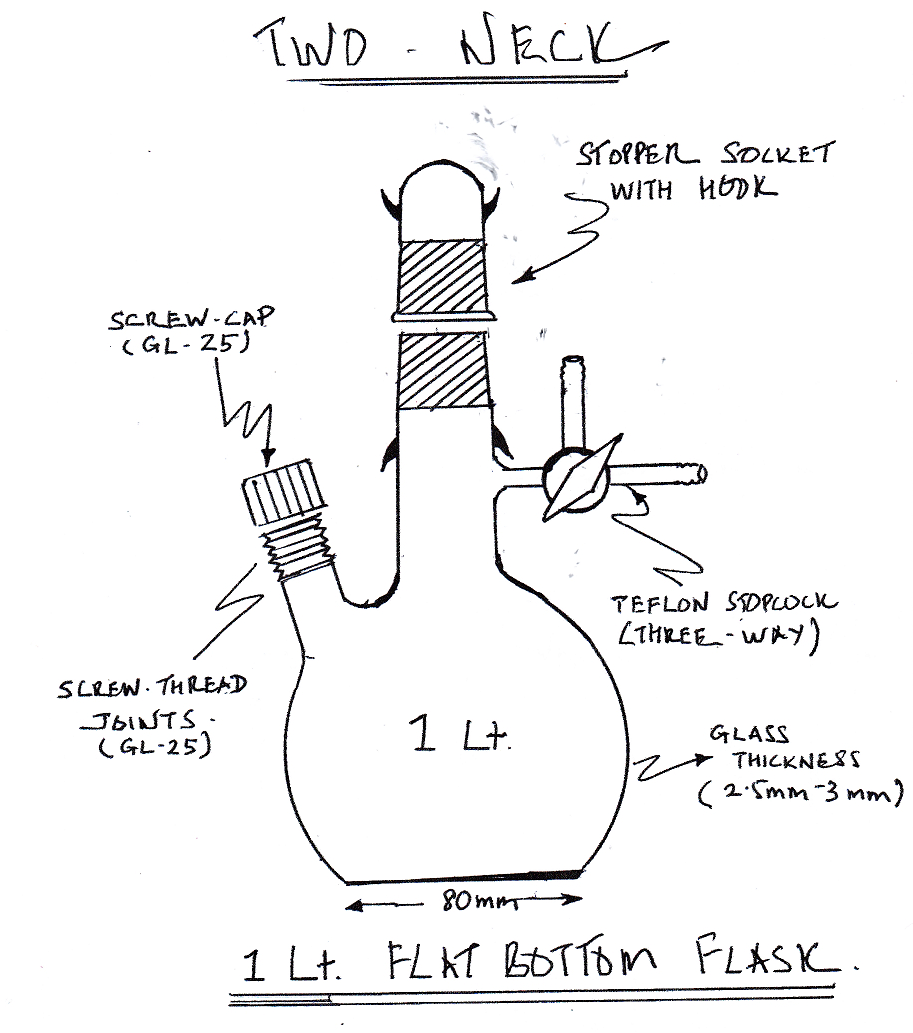 TWO - NECK
STOPPER SOCKET
WITH HOOK
SCREW-CAP
(GL-25)
TEFLON STOPCOCK
(THREE-WAY)
SCREW-THREAD
JOINTS.
(GL-25)
1 Lt.
GLASS
THICKNESS
(2.5mm-3mm)
80mm
1 Lt. FLAT BOTTOM FLASK.